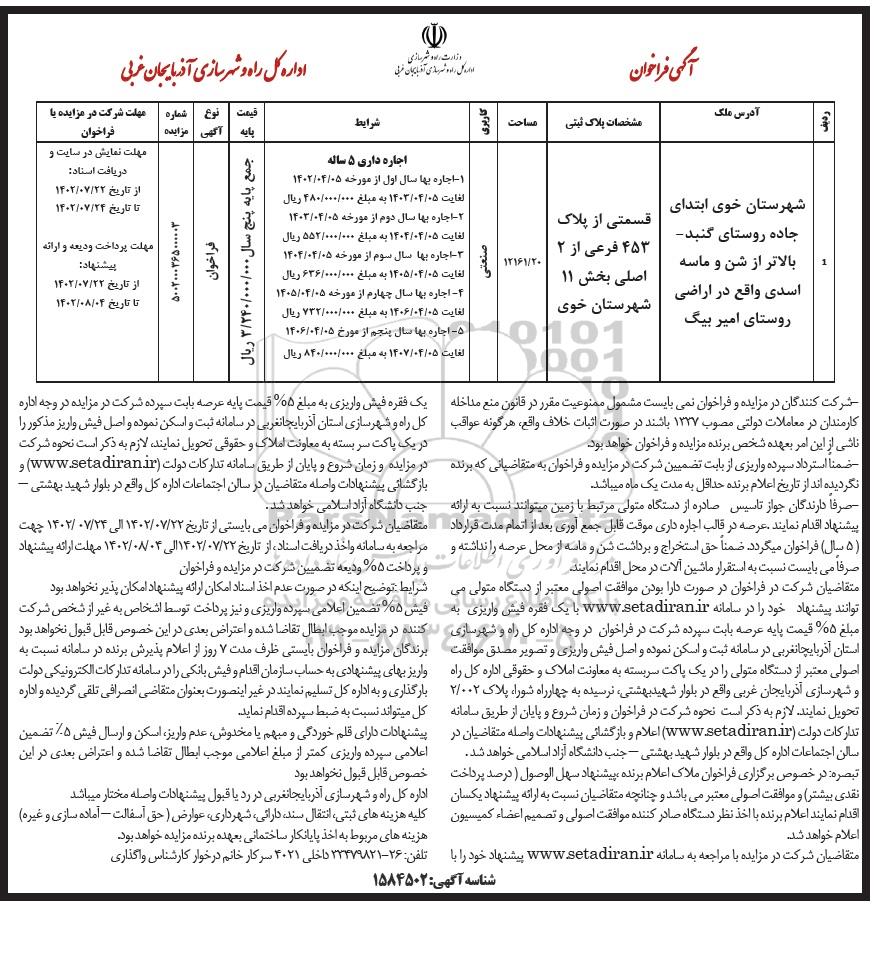 آگهی فراخوان
وزارت راه و شهرسازی
اداره کل راه و شهرسازی آذربایجان غربی
اداره کل راه و شهرسازی آذربایجان غربی
ردیف
آدرس ملک
مشخصات پلاک ثبتی
مساحت
کاربری
شرایط
قیمت پایه
نوع آگهی
شماره مزایده
مهلت شرکت در مزایده یا فراخوان
1
شهرستان خوی ابتدای
جاده روستای گنبد–
بالاتر از شن و ماسه
اسدی واقع در اراضی
روستای امیر بیگ
قسمتی از پلاک
۴۵۳ فرعی از ۲
اصلی بخش ۱۱
شهرستان خوی
۱۲۱۶۱/۲۰
صنعتی
اجاره داری ۵ ساله
۱–اجاره بها سال اول از مورخه ۱۴۰۲/۰۴/۰۵
لغایت ۱۴۰۳/۰۴/۰۵ به مبلغ ۴۸۰/۰۰۰/۰۰۰ ریال
۲–اجاره بها سال دوم از مورخه ۱۴۰۳/۰۴/۰۵
لغایت ۱۴۰۴/۰۴/۰۵ به مبلغ ۵۵۲/۰۰۰/۰۰۰ ریال
۳–اجاره بها سال سوم از مورخه ۱۴۰۴/۰۴/۰۵
لغایت ۱۴۰۵/۰۴/۰۵ به مبلغ ۶۳۶/۰۰۰/۰۰۰ ریال
۴– اجاره بها سال چهارم از مورخه ۱۴۰۵/۰۴/۰۵
لغایت ۱۴۰۶/۰۴/۰۵ به مبلغ ۷۳۲/۰۰۰/۰۰۰ ریال
۵–اجاره بها سال پنجم از مورخ ۱۴۰۶/۰۴/۰۵
لغایت ۱۴۰۷/۰۴/۰۵ به مبلغ ۸۴۰/۰۰۰/۰۰۰ ریال
جمع پایه پنج سال ۳/۲۴۰/۰۰۰/۰۰۰ ریال
فراخوان
مهلت نمایش در سایت و
دریافت اسناد:
از تاریخ ۱۴۰۲/۰۷/۲۲
تا تاریخ ۱۴۰۲/۰۷/۲۴
مهلت پرداخت ودیعه و ارائه
پیشنهاد:
از تاریخ ۱۴۰۲/۰۷/۲۲
تا تاریخ ۱۴۰۲/۰۸/۰۴
–شرکت کنندگان در مزایده و فراخوان نمی بایست مشمول ممنوعیت مقرر در قانون منع مداخله
کارمندان در معاملات دولتی مصوب ۱۳۳۷ باشند در صورت اثبات خلاف واقع، هرگونه عواقب
ناشی از این امر بعهده شخص برنده مزایده و فراخوان خواهد بود.
–ضمناً استرداد سپرده واریزی از بابت تضمین شرکت در مزایده و فراخوان به متقاضیانی که برنده
نگردیده اند از تاریخ اعلام برنده حداقل به مدت یک ماه میباشد.
–صرفاً دارندگان جواز تاسیس صادره از دستگاه متولی مرتبط با زمین میتوانند نسبت به ارائه
پیشنهاد اقدام نمایند .عرصه در قالب اجاره داری موقت قابل جمع آوری بعد از اتمام مدت قرارداد
( ۵ سال) فراخوان میگردد. ضمناً حق استخراج و برداشت شن و ماسه از محل عرصه را نداشته و
صرفاً می بایست نسبت به استقرار ماشین آلات در محل اقدام نمایند.
متقاضیان شرکت در فراخوان در صورت دارا بودن موافقت اصولی معتبر از دستگاه متولی می
توانند پیشنهاد خود را در سامانه www.setadiran.ir با یک فقره فیش واریزی به
مبلغ ۵% قیمت پایه عرصه بابت سپرده شرکت در فراخوان در وجه اداره کل راه و شهرسازی
استان آذربایجانغربی در سامانه ثبت و اسکن نموده و اصل فیش واریزی و تصویر مصدق موافقت
اصولی معتبر از دستگاه متولی را در یک پاکت سربسته به معاونت املاک و حقوقی اداره کل راه
و شهرسازی آذربایجان غربی واقع در بلوار شهیدبهشتی، نرسیده به چهارراه شورا، پلاک ۲/۰۰۲
تحویل نمایند. لازم به ذکر است نحوه شرکت در فراخوان و زمان شروع و پایان از طریق سامانه
تدارکات دولت (www.setadiran.ir) اعلام و بازگشائی پیشنهادات واصله متقاضیان در
سالن اجتماعات اداره کل واقع در بلوار شهید بهشتی – جنب دانشگاه آزاد اسلامی خواهد شد .
تبصره: در خصوص برگزاری فراخوان ملاک اعلام برنده ،پیشنهاد سهل الوصول ( درصد پرداخت
نقدی بیشتر) و موافقت اصولی معتبر می باشد و چنانچه متقاضیان نسبت به ارائه پیشنهاد یکسان
اقدام نمایند اعلام برنده با اخذ نظر دستگاه صادر کننده موافقت اصولی و تصمیم اعضاء کمیسیون
اعلام خواهد شد.
متقاضیان شرکت در مزایده با مراجعه به سامانه www.setadiran.ir پیشنهاد خود را با
یک فقره فیش واریزی به مبلغ ۵% قیمت پایه عرصه بابت سپرده شرکت در مزایده در وجه اداره
کل راه و شهرسازی استان آذربایجانغربی در سامانه ثبت و اسکن نموده و اصل فیش واریز مذکور را
در یک پاکت سر بسته به معاونت املاک و حقوقی تحویل نمایند، لازم به ذکر است نحوه شرکت
در مزایده و زمان شروع و پایان از طریق سامانه تدارکات دولت (www.setadiran.ir) و
بازگشائی پیشنهادات واصله متقاضیان در سالن اجتماعات اداره کل واقع در بلوار شهید بهشتی –
جنب دانشگاه آزاد اسلامی خواهد شد .
متقاضیان شرکت در مزایده و فراخوان می بایستی از تاریخ ۱۴۰۲/۰۷/۲۲ الی ۱۴۰۲/ ۰۷/۲۴ جهت
مراجعه به سامانه واخذ دریافت اسناد ، از تاریخ ۱۴۰۲/۰۷/۲۲الی ۱۴۰۲/۰۸/۰۴ مهلت ارائه پیشنهاد
و پرداخت ۵% ودیعه تضمین شرکت در مزایده و فراخوان
شرایط :توضیح اینکه در صورت عدم اخذ اسناد امکان ارائه پیشنهاد امکان پذیر نخواهد بود
فیش ۵% تضمین اعلامی سپرده واریزی و نیز پرداخت توسط اشخاص به غیر از شخص شرکت
کننده در مزایده موجب ابطال تقاضا شده و اعتراض بعدی در این خصوص قابل قبول نخواهد بود
برندگان مزایده و فراخوان بایستی ظرف مدت ۷ روز از اعلام پذیرش برنده در سامانه نسبت به
واریز بهای پیشنهادی به حساب سازمان اقدام و فیش بانکی را در سامانه تدارکات الکترونیکی دولت
بارگذاری و به اداره کل تسلیم نمایند در غیر اینصورت بعنوان متقاضی انصرافی تلقی گردیده و اداره
کل میتواند نسبت به ضبط سپرده اقدام نماید.
پیشنهادات دارای قلم خوردگی و مبهم یا مخدوش، عدم واریز، اسکن و ارسال فیش ۵٪ تضمین
اعلامی سپرده واریزی کمتر از مبلغ اعلامی موجب ابطال تقاضا شده و اعتراض بعدی در این
خصوص قابل قبول نخواهد بود
اداره کل راه و شهرسازی آذربایجانغربی در رد یا قبول پیشنهادات واصله مختار میباشد
کلیه هزینه های ثبتی، انتقال سند، دارائی، شهرداری، عوارض ( حق آسفالت – آماده سازی و غیره)
هزینه های مربوط به اخذ پایانکار ساختمانی بعهده برنده مزایده خواهد بود.
تلفن: ۲۶–۳۳۴۷۹۸۲۱ داخلی ۴۰۲۱ سرکار خانم درخوار کارشناس واگذاری
شناسه آگهی: ۱۵۸۴۵۰۲